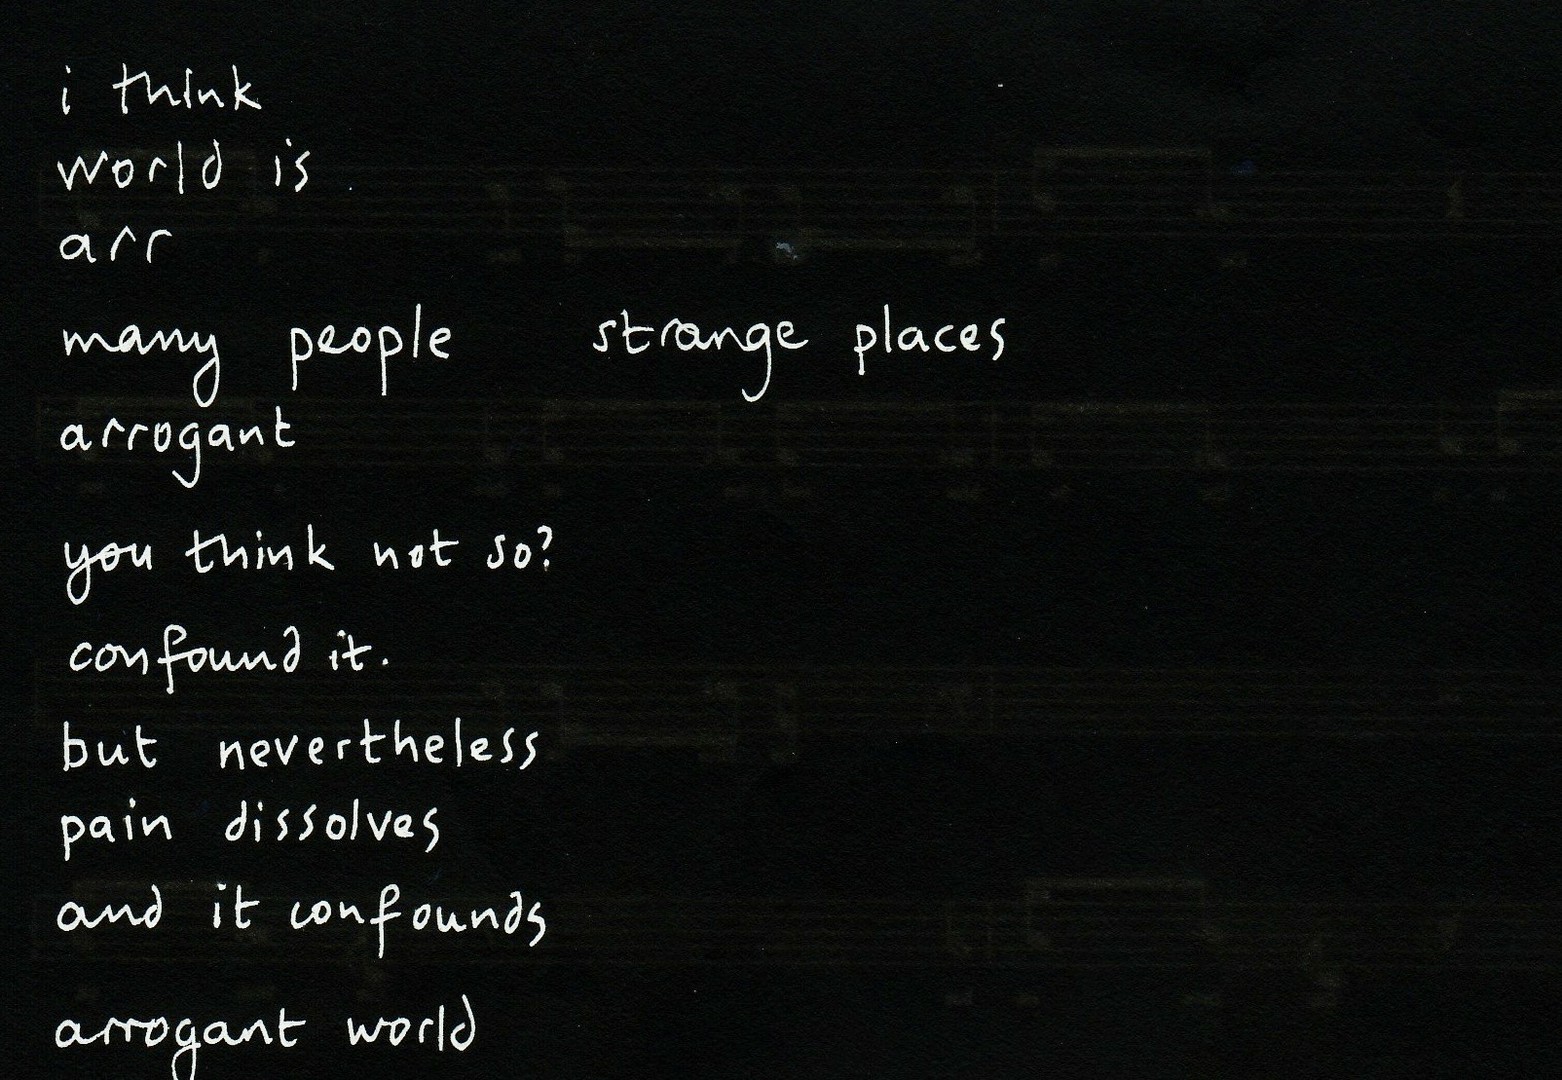 i think
world is
arr
many people strange places
arrogant
you think not so?
confound it.
but nevertheless
pain dissolves
and it confounds
arrogant world